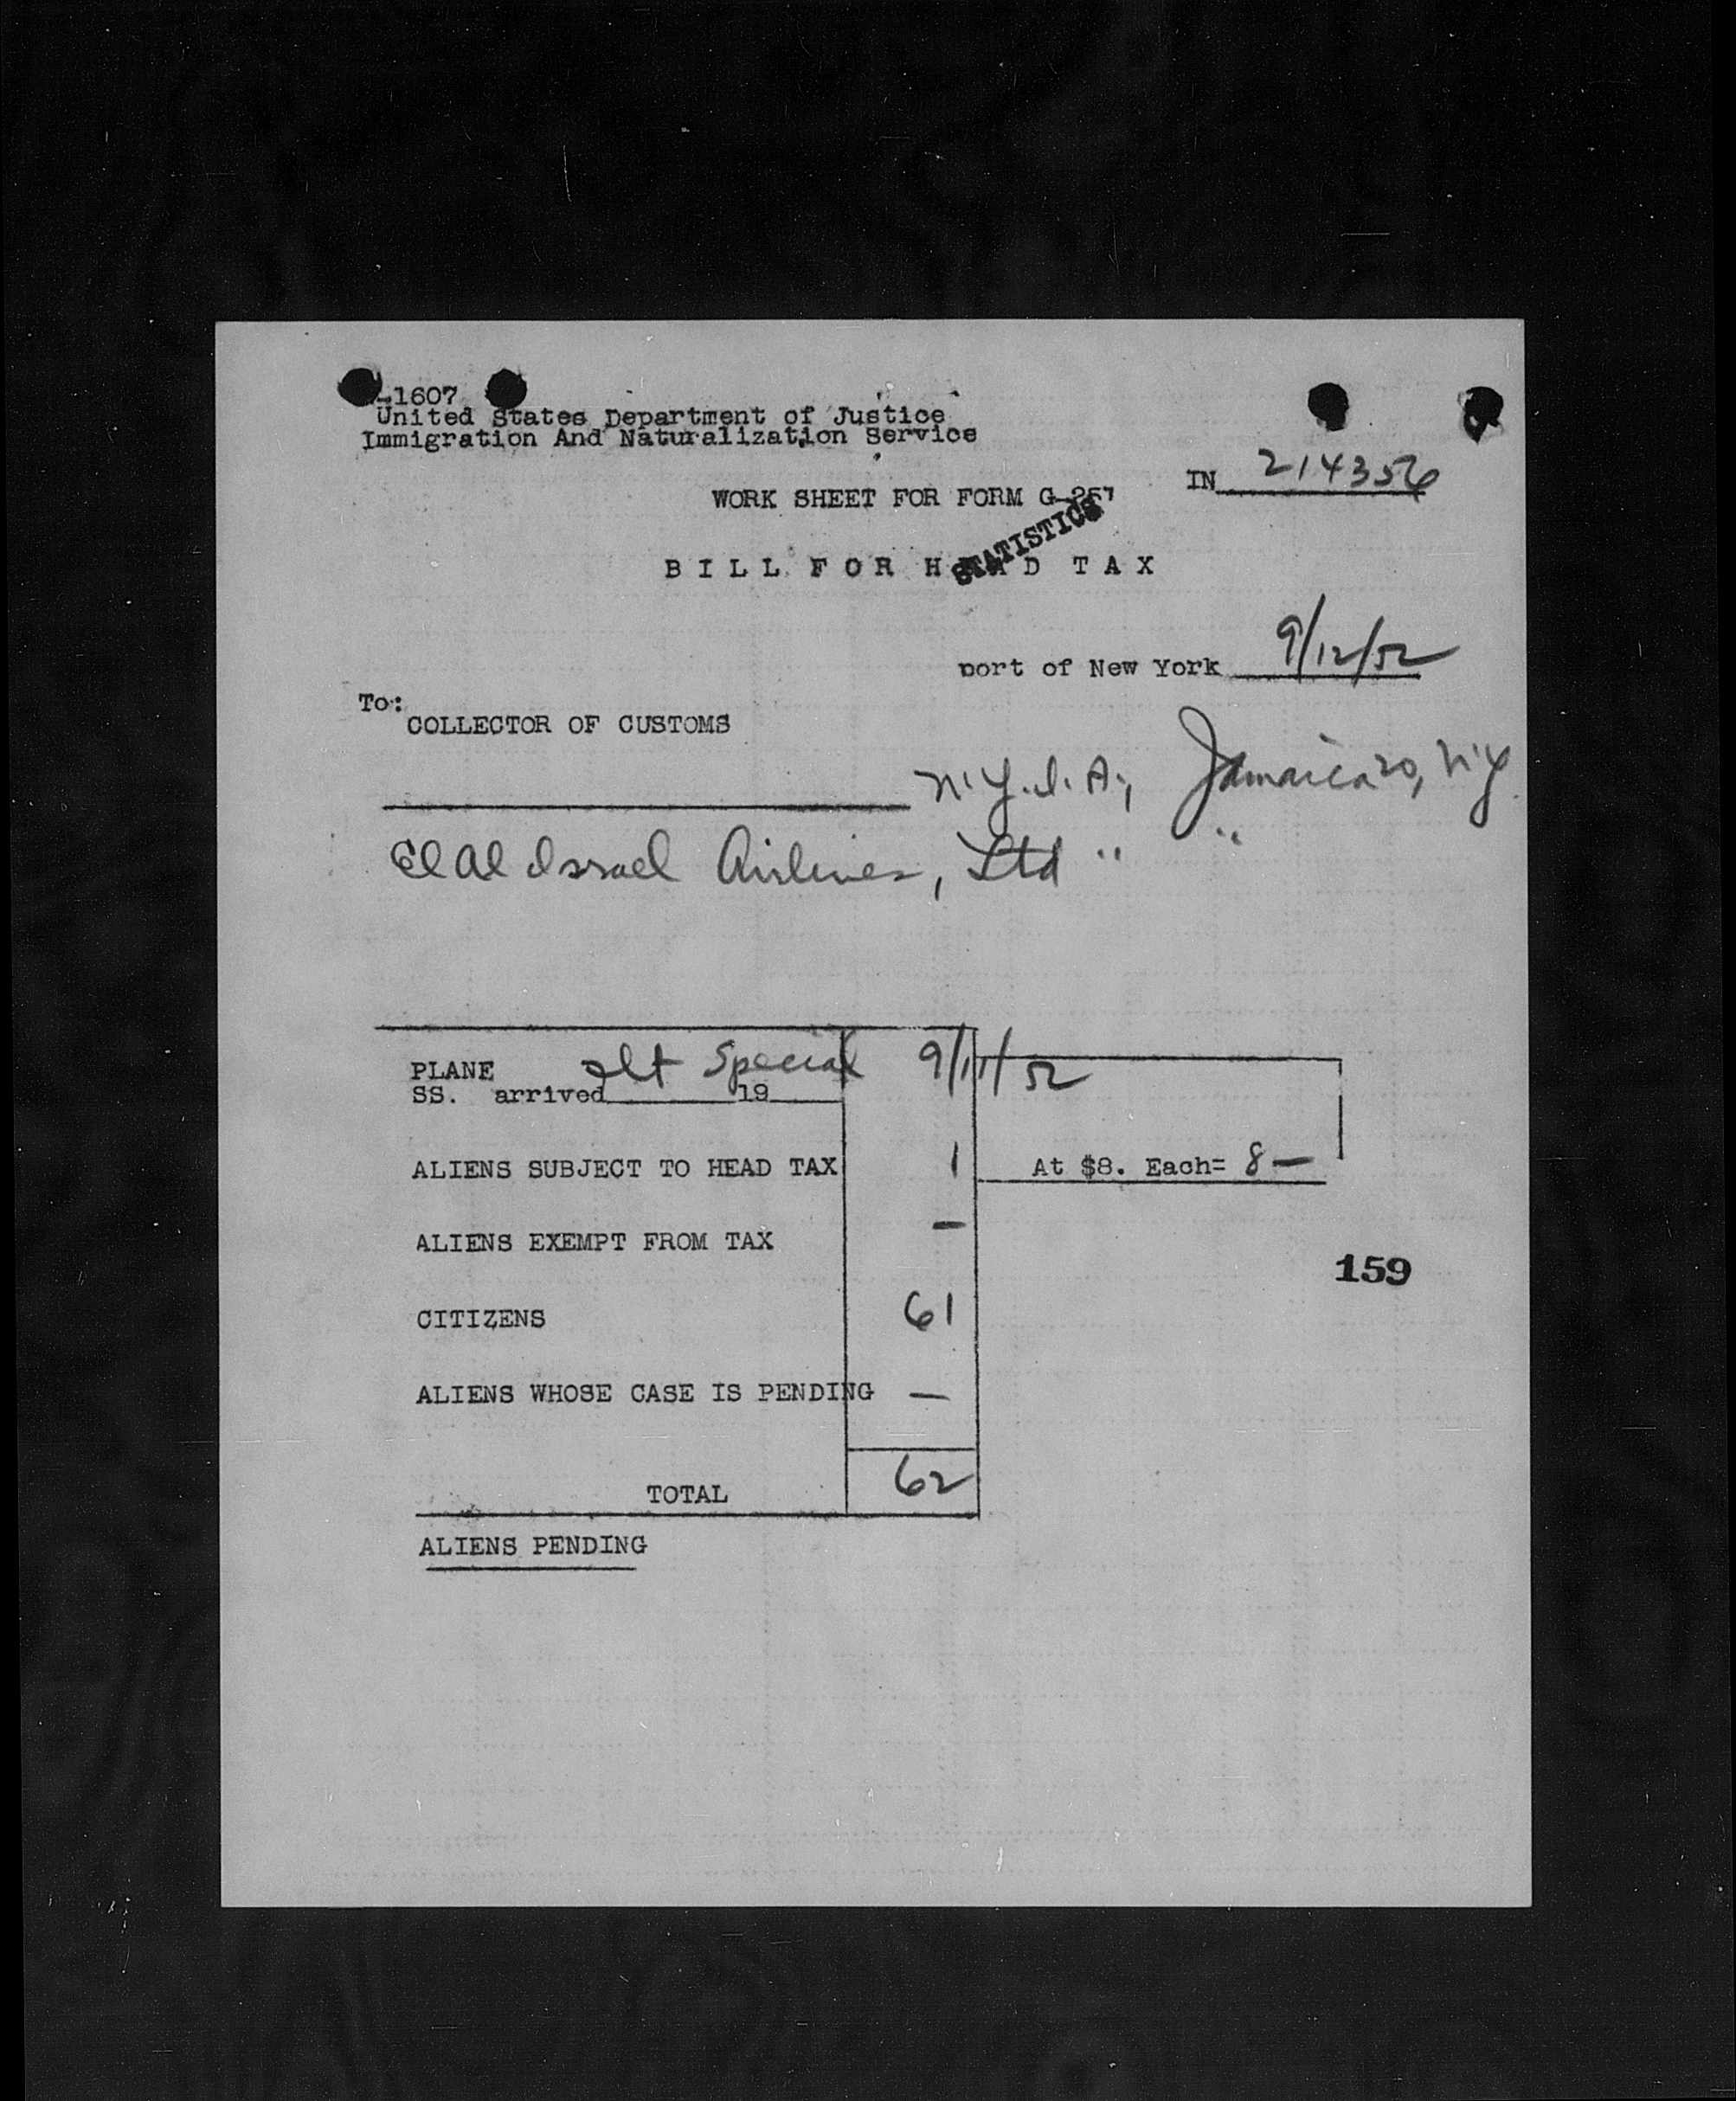 -1607
United States Department of Justice
Immigration And Naturalization Service
IN 214356
WORK SHEET FOR FORM G-257
STATISTICS
BILL FOR HEAD TAX
port of New York 9/12/52
To:
COLLECTOR OF CUSTOMS
N.Y.I.A., Jamaica 20, N.Y.
El Al Israel Airlines, Ltd " "
PLANE Flt Special 9/11/52
SS. arrived 19
ALIENS SUBJECT TO HEAD TAX 1 At $8. Each= 8 —
ALIENS EXEMPT FROM TAX —
159
CITIZENS 61
ALIENS WHOSE CASE IS PENDING —
TOTAL 62
ALIENS PENDING